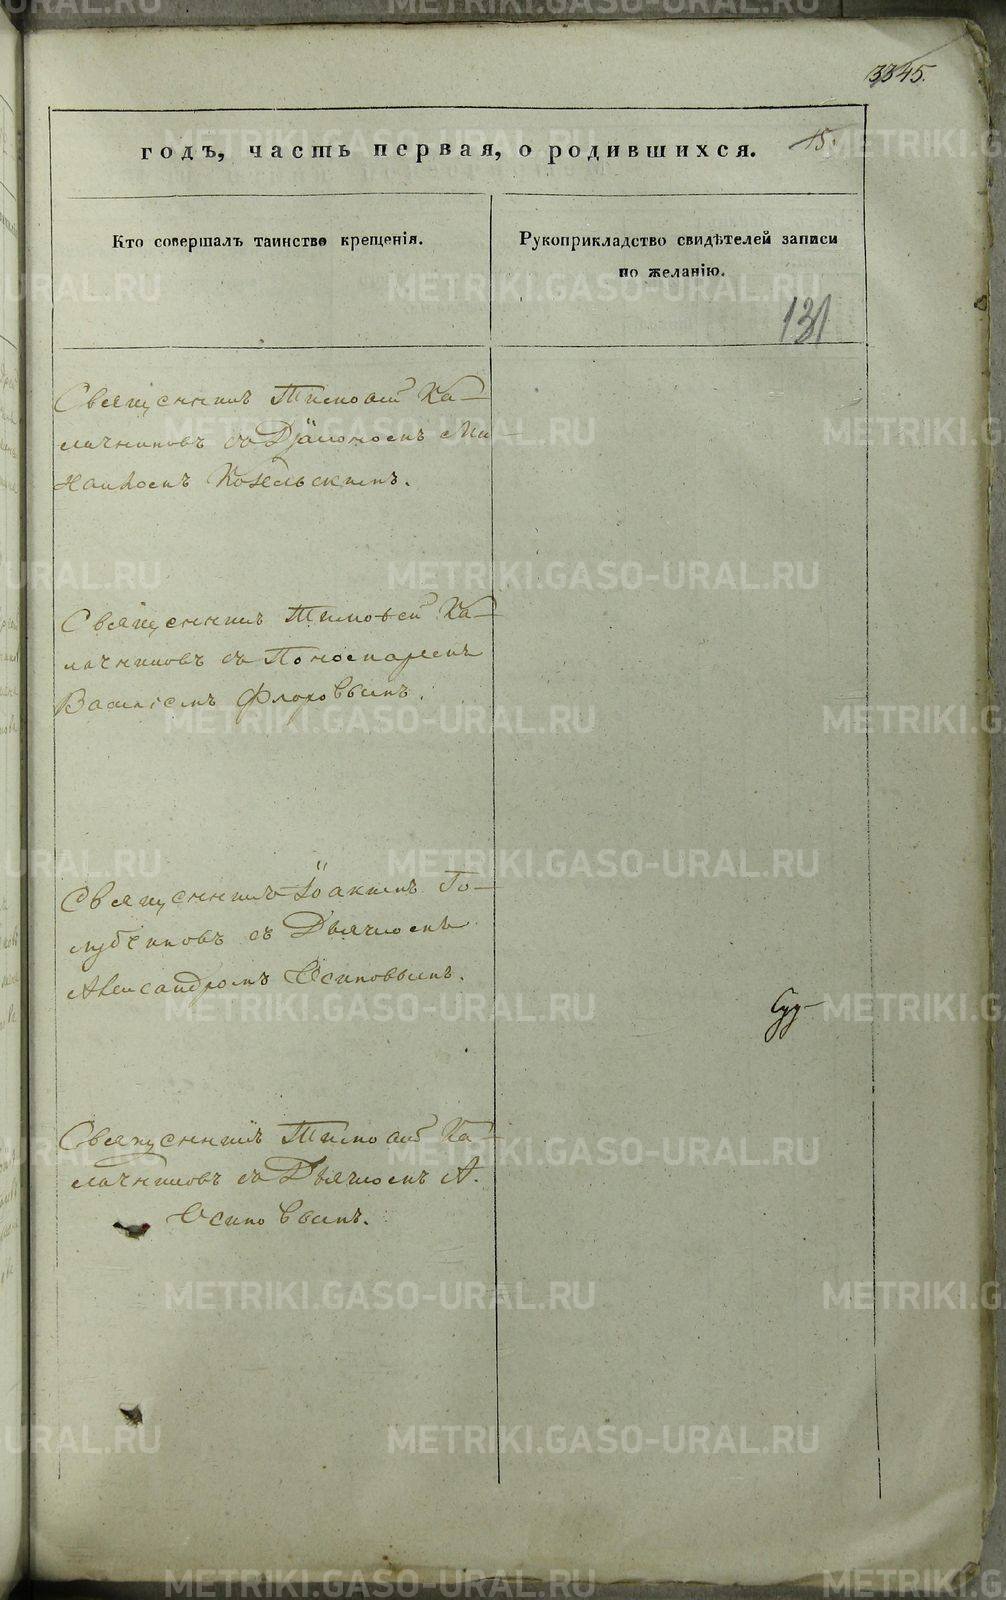 3345.
годъ, часть первая, о родившихся.
15.
Кто совершалъ таинство крещенія.
Рукоприкладство свидѣтелей записи
по желанію.
131
Священникъ Тимоѳей Ка-
лачниковъ съ Діакономъ Ми-
Священникъ Тимоѳей Ка-
лачниковъ съ Пономаремъ
Василіемъ Флоровымъ.
Священникъ Іоакимъ Го-
лубчиковъ съ Дьячкомъ
Александромъ Осиповымъ.
Священникъ Тимоѳей Ка-
лачниковъ съ Дьячкомъ А.
Осиповымъ.
METRIKI.GASO-URAL.RU